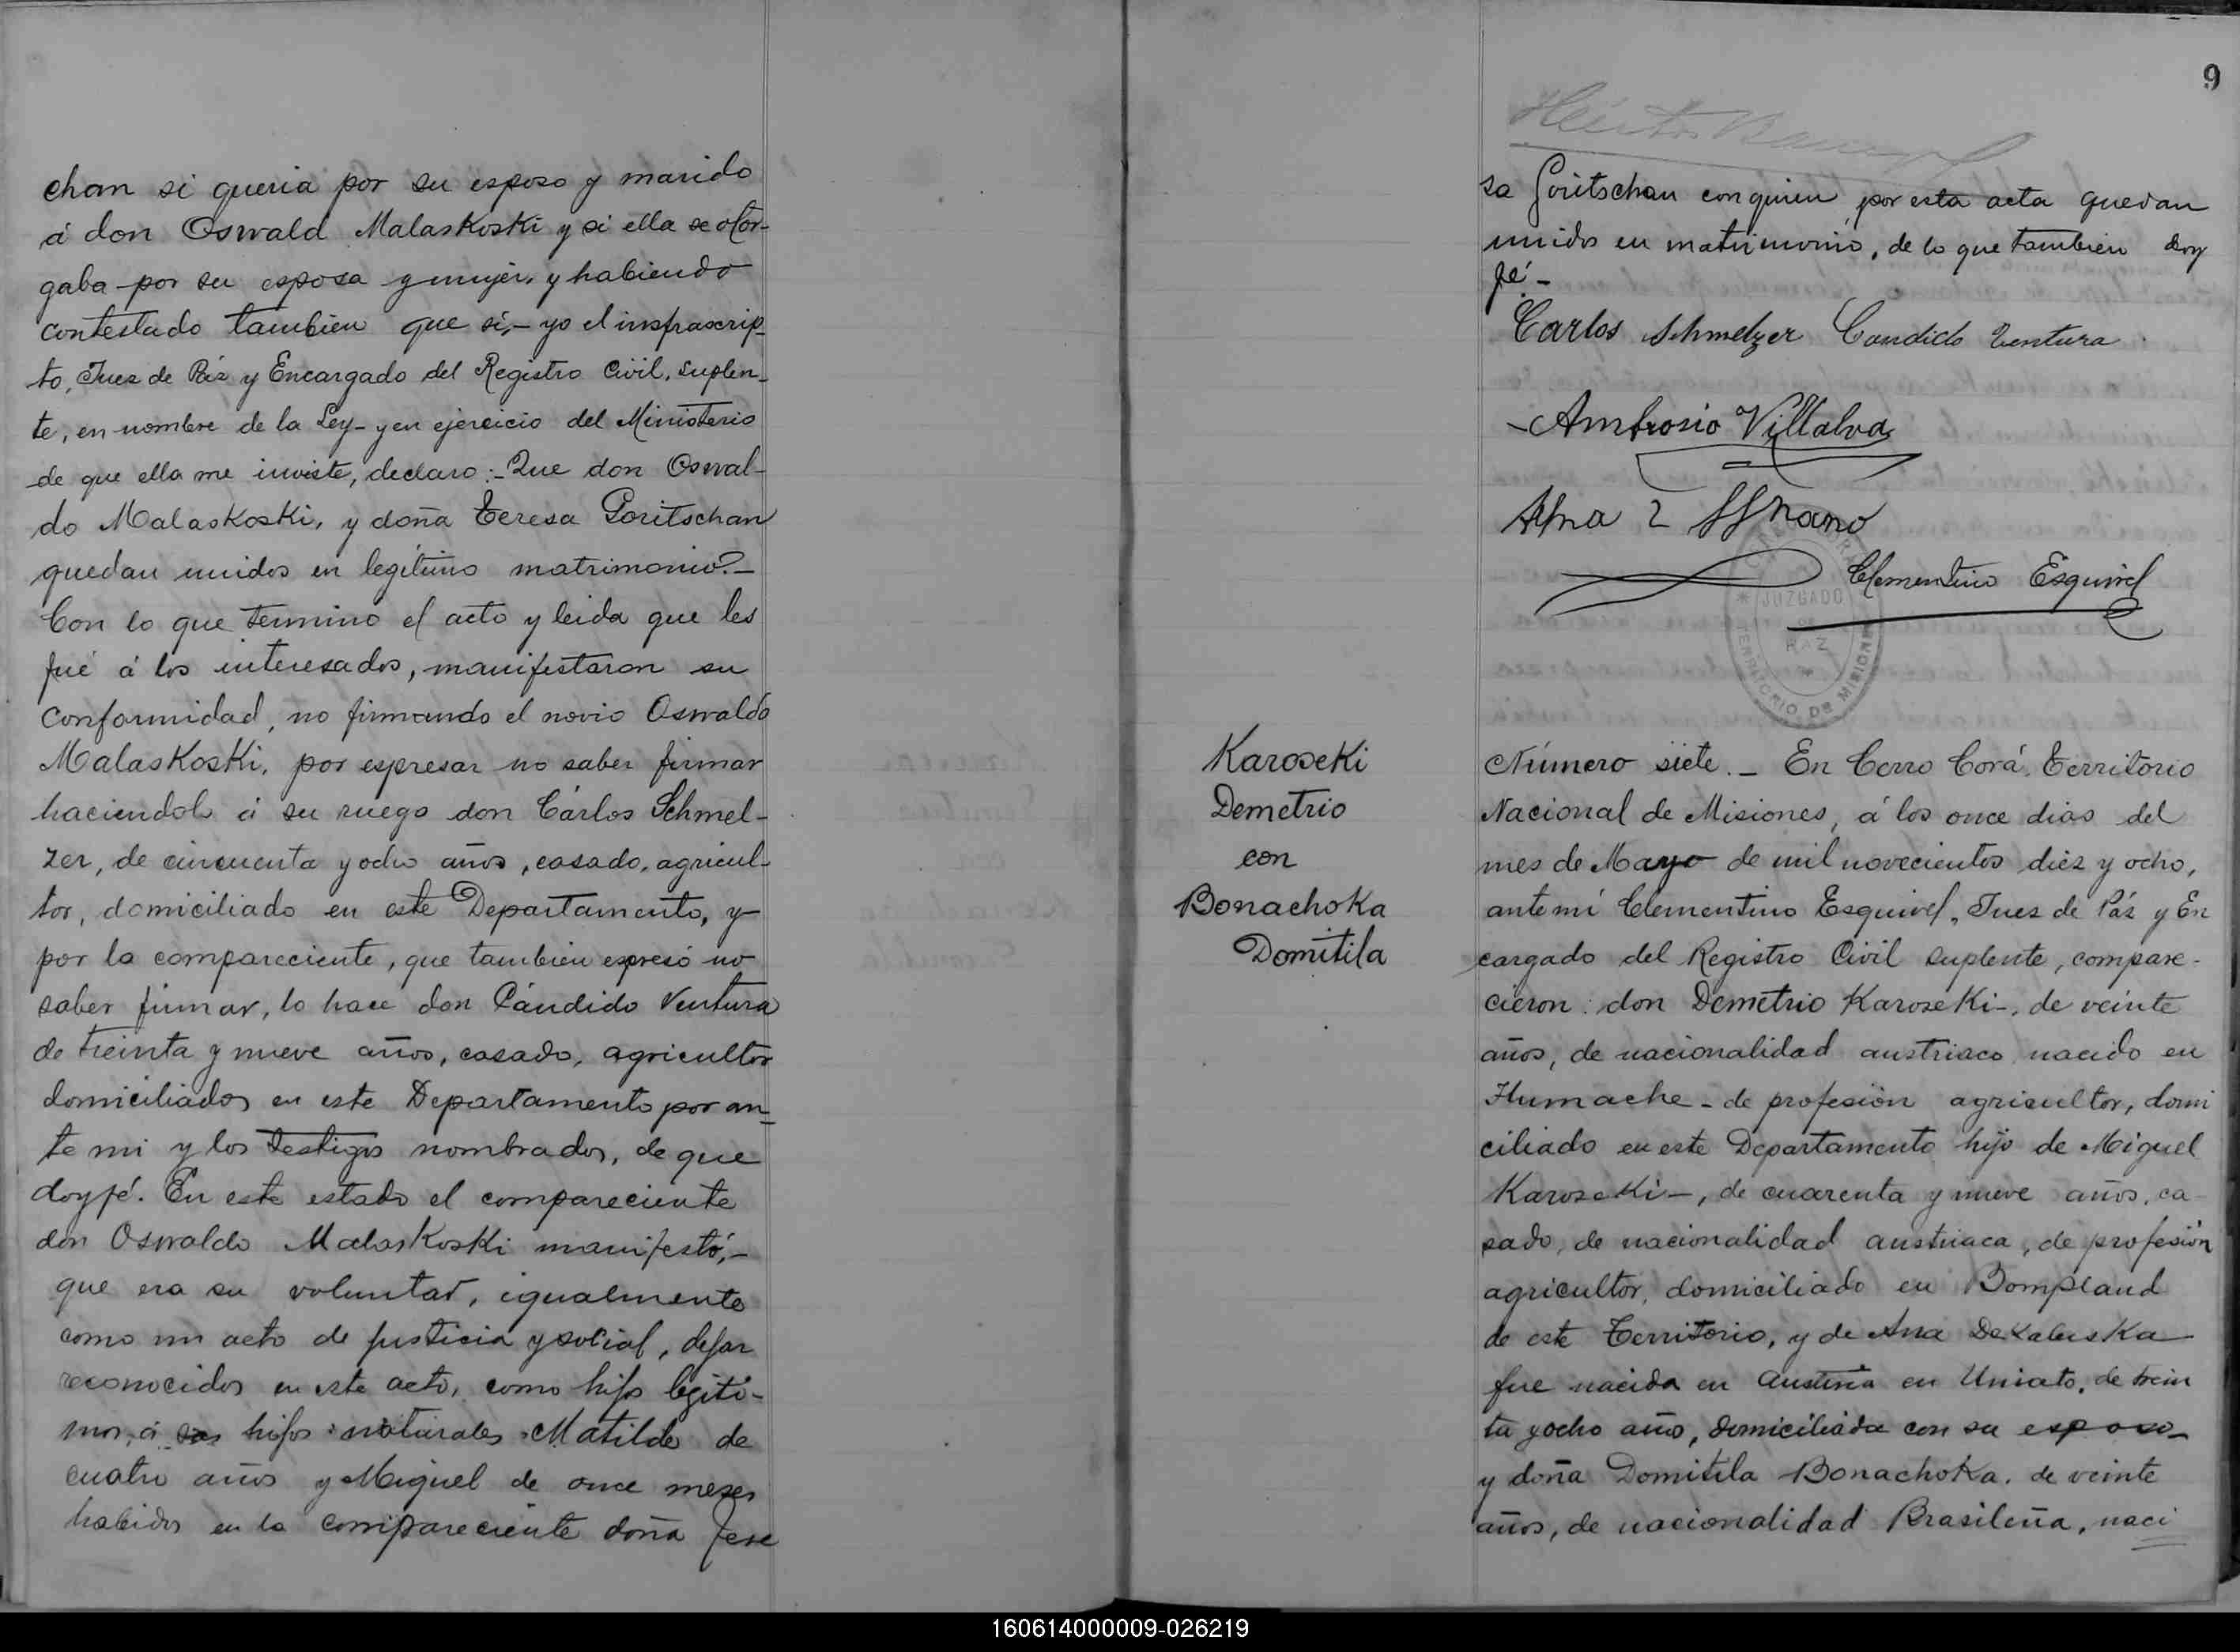 chan si queria por su esposo y marido
á don Oswald Malaskoski y si ella se otor-
gaba por su esposa y mujer, y habiendo
contestado tambien que si,- yo el insfrascrip-
to, Juez de Páz y Encargado del Registro Civil, suplen-
te, en nombre de la Ley- y en ejercicio del Ministerio
de que ella me inviste, declaro:- Que don Oswal-
do Malaskoski, y doña Teresa Goritschan
quedan unidos en legitimo matrimonio?-
Con lo que termino el acto y leida que les
fué á los interesados, manifestaron su
conformidad, no firmando el novio Oswaldo
Malaskoski, por espresar no saber firmar
haciendolo á su ruego don Cárlos Schmel-
zer, de cincuenta y ocho años, casado, agricul-
tor, domiciliado en este Departamento, y
por la compareciente, que tambien espresó no
saber firmar, lo hace don Cándido Ventura
de treinta y nueve años, casado, agricultor
domiciliados en este Departamento por an-
te mi y los testigos nombrados, de que
doy fé. En este estado el compareciente
don Oswaldo Malaskoski manifestó,-
que era su voluntad, igualmente
como un acto de justicia y social, dejar
reconocidos en este acto, como hijos legiti-
mos, á sus hijos naturales Matilde de
cuatro años y Miguel de once meses
habidos en la compareciente doña Tere
9
sa Goritschan con quien por esta acta quedan
unidos en matrimonio, de lo que tambien doy
fé.-
Carlos Schmelzer Candido Ventura
Ambrosio Villalva
Clementino Esquivel
JUZGADO
DE
PAZ
TERRITORIO DE MISIONES
Karoseki
Demetrio
con
Bonachoka
Domitila
Número siete.- En Cerro Corá, Territorio
Nacional de Misiones, á los once dias del
mes de Mayo de mil novecientos diez y ocho,
ante mí Clementino Esquivel, Juez de Páz y En
cargado del Registro Civil suplente, compare-
cieron: don Demetrio Karoseki-, de veinte
años, de nacionalidad austriaco nacido en
Humache- de profesión agricultor, domi
ciliado en este Departamento hijo de Miguel
Karoseki-, de cuarenta y nueve años, ca-
sado, de nacionalidad austriaca, de profesión
agricultor, domiciliado en Bompland
de este Territorio, y de Ana
fue nacida en Austria en Uniato, de trein
ta y ocho año, domiciliada con su esposo-
y doña Domitila Bonachoka, de veinte
años, de nacionalidad Brasileña, naci
160614000009-026219